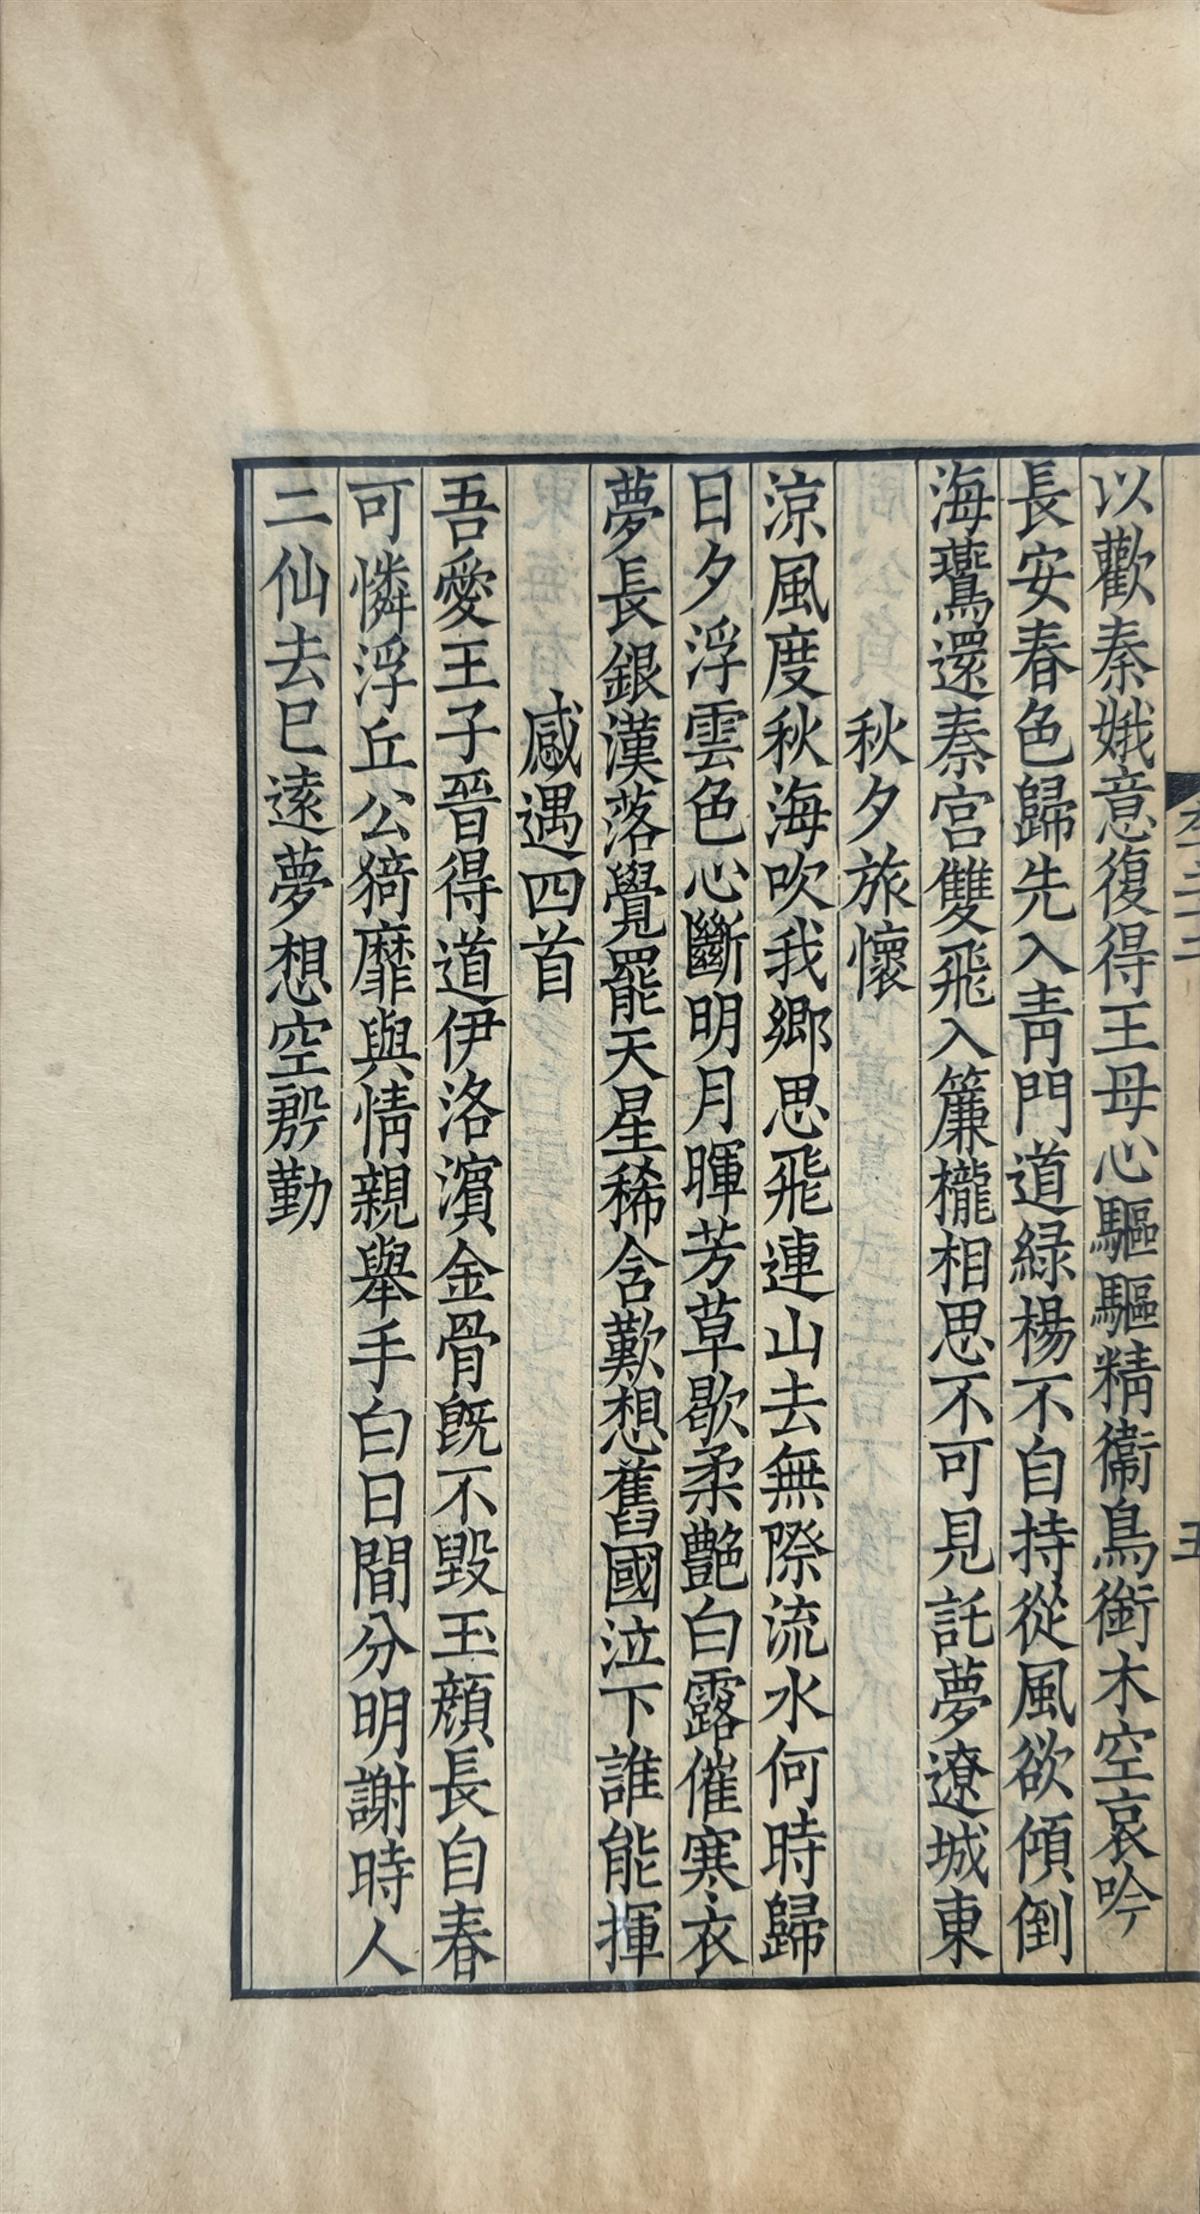 以歡秦娥意復得王母心驅驅精衞鳥銜木空哀吟
長安春色歸先入青門道緑楊不自持從風欲傾倒
海鷰還秦宮雙飛入簾櫳相思不可見託夢遼城東
秋夕旅懷
涼風度秋海吹我鄉思飛連山去無際流水何時歸
日夕浮雲色心斷明月暉芳草歇柔艶白露催寒衣
夢長銀漢落覺罷天星稀含歎想舊國泣下誰能揮
感遇四首
吾愛王子晉得道伊洛濱金骨旣不毀玉顔長自春
可憐浮丘公猗靡與情親舉手白日間分明謝時人
二仙去已遠夢想空殷勤